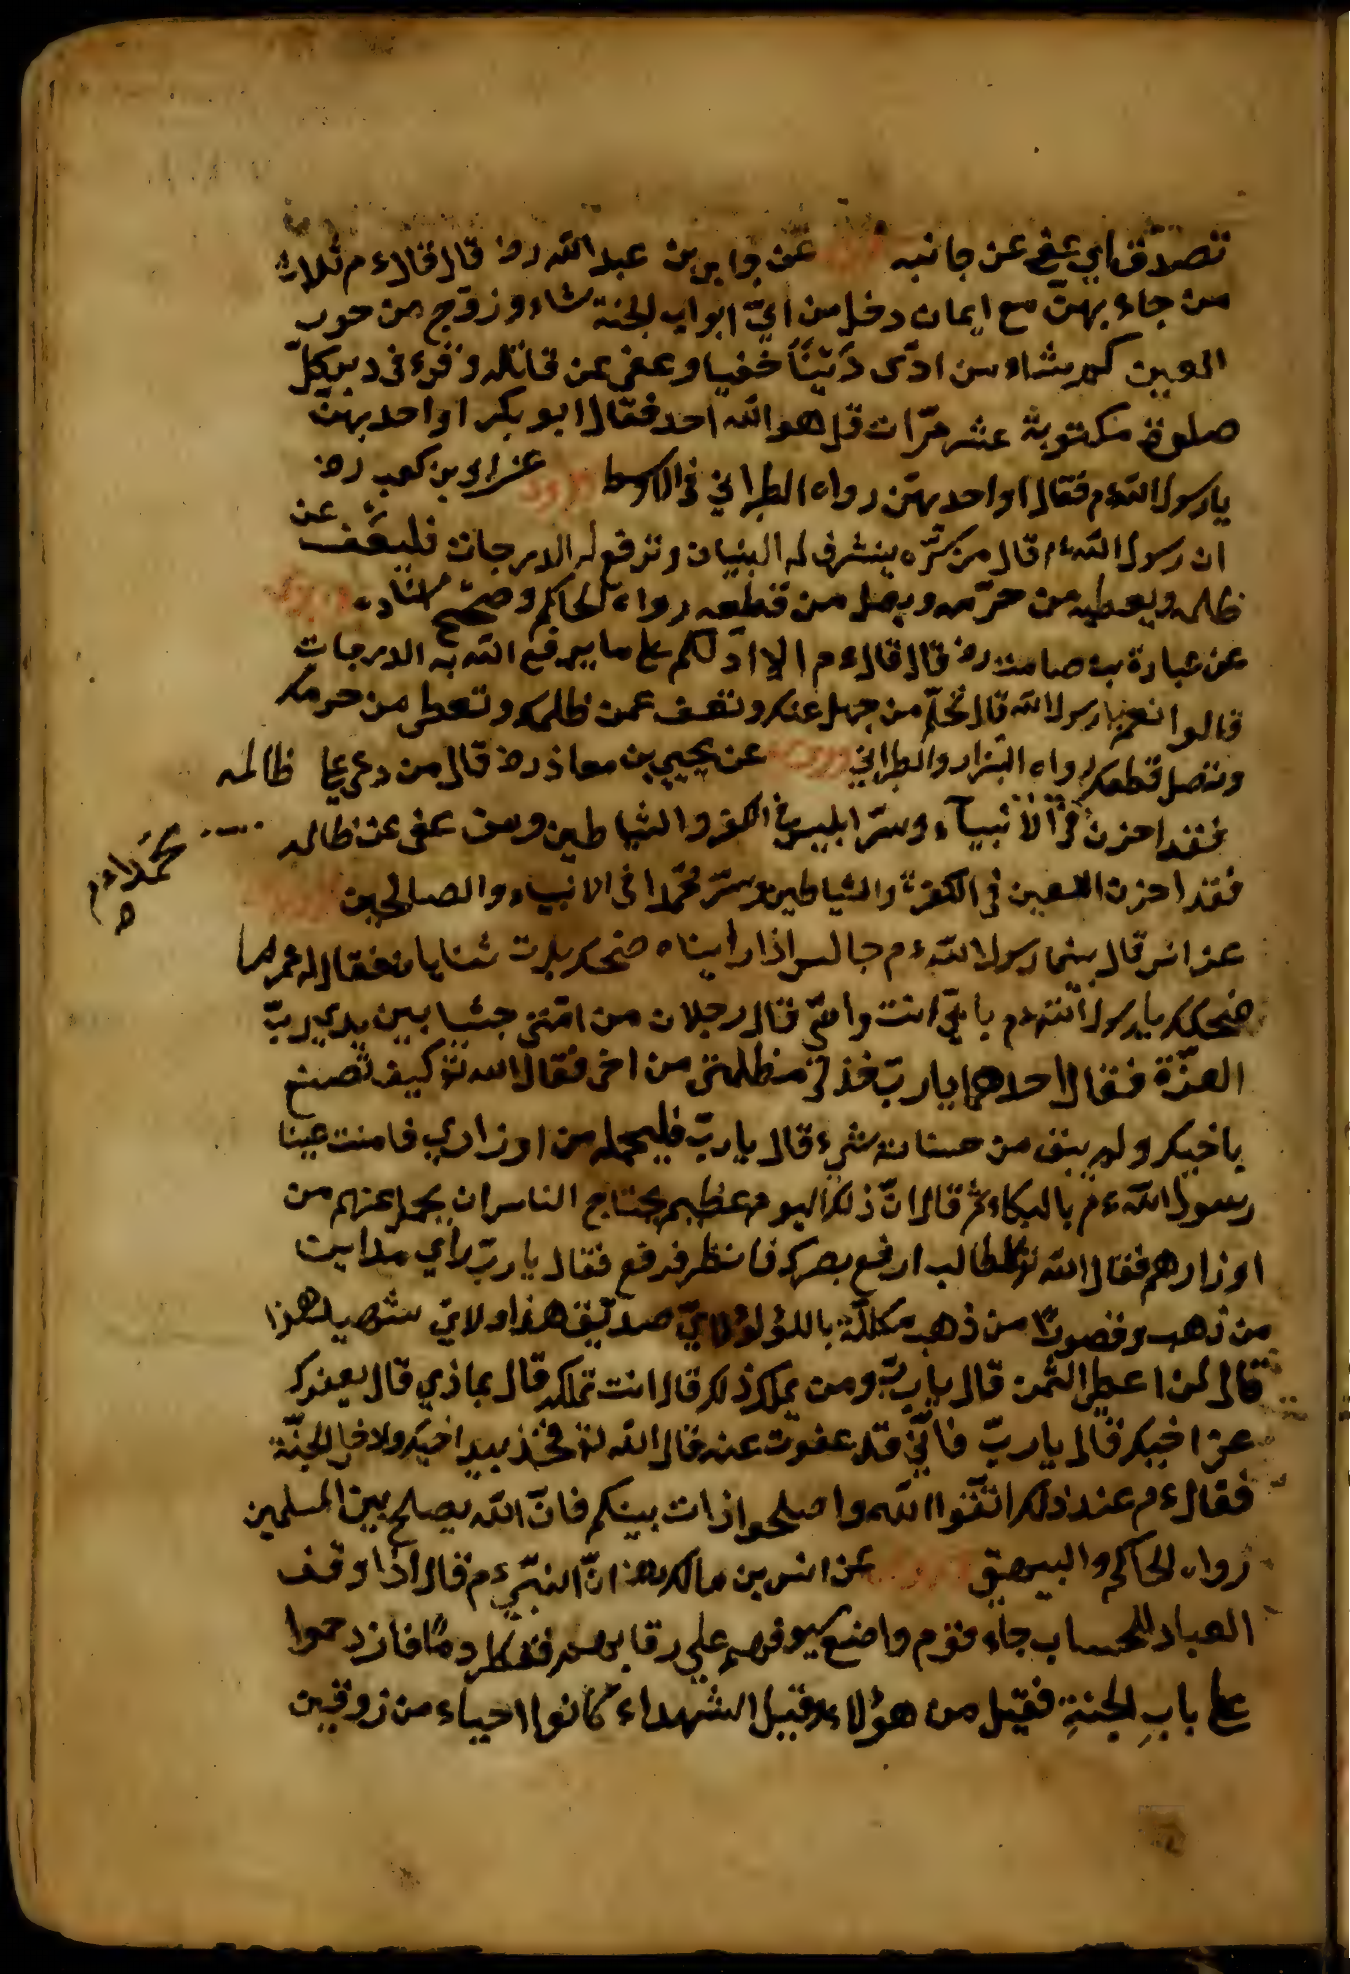 تصدّق اي عفي عن جانيه وروي عن جابر بن عبد الله رض قال قال ءم ثلاث
من جاء بهنّ مع ايمان دخل من ايّ ابواب الجنة شاء وزوّج من حور
العين كم شاء من ادّى دَيْنًا خفيا وعفى عن قاتله وقرء فى دبر كلّ
صلوة مكتوبة عشر مرّات قل هو الله احد فقال ابو بكر او احديهنّ
يا رسول الله ءم فقال او احديهنّ رواه الطبراني في الاوسط وروي عن ابي بن كعب رض
ان رسول الله ءم قال من سرّه ان يشرف له البنيان وترفع له الدرجات فليعف عن
ظلمه ويعطيه من حرّمه ويصل من قطعه رواه الحاكم وصحّح اسناده وروي
عن عبادة بن صامت رض قال قال ءم الا ادّلكم على ما يرفع الله به الدرجات
قالوا نعم يا رسول الله قال تحلّم من جهل عنك وتعف عمن ظلمك وتعطى من حرمك
وتصل قطعك رواه البزار والطبراني وروي عن يحيى بن معاذ رض قال من دعى على ظالمه
فقد احزن في الانبيآء وسرّ ابليس في الكفر والشياطين ومن عفى عن ظالمه
محمّدا ءم
فقد احزن اللعين في الكفرة والشياطين وسرّ محمّدا فى الانبياء والصالحين وروي
عن انس قال بينما رسول الله ءم جالس اذا راايناه ضحك بدت ثناياه فقال له عمر ما
ضحكك يا رسول الله ءم بابي انت وامّي قال رجلان من امّتى جثيا بين يدي ربّ
العزّة فقال احدهما يا ربّ خذ لي مظلمتى من اخى فقال الله تع كيف تصنع
باخيك ولم يبق من حسناته شيء قال يا ربّ فليحمل من اوزاري فامنت عينا
رسول الله ءم بالبكاء ثم قال انّ ذلك اليوم عظيم يحتاج الناس ان يحمل عنهم من
اوزارهم فقال الله تع للطالب ارفع بصرك فانظر فرفع فقال يا ربّ راي مداين
من ذهب وقصورًا من ذهب مكلّلة باللؤلؤ لايّ صدّيق هذا او لايّ شهيد هذا
قال لمن اعطى الثمن قال يا ربّ ومن يملك ذلك قال انت تملكه قال بماذي قال بعفوك
عن اخيك قال يا ربّ فانّي قد عفوت عنه قال الله تع فخذ بيد اخيك ولادخل الجنّة
فقال ءم عند ذلك اتّقوا الله واصلحوا ذات بينكم فانّ الله يصلح بين المسلمين
رواه الحاكم والبيهقى وروي عن انس بن مالك رض انّ النبّي ءم قال اذا وقف
العباد للحساب جاء قوم واضع سيوفهم على رقابهم فتقطر دمًا فازدحموا
على بابِ الجنةِ فقيل من هؤلاء قيل الشهداء كانوا احياء مرزوقين